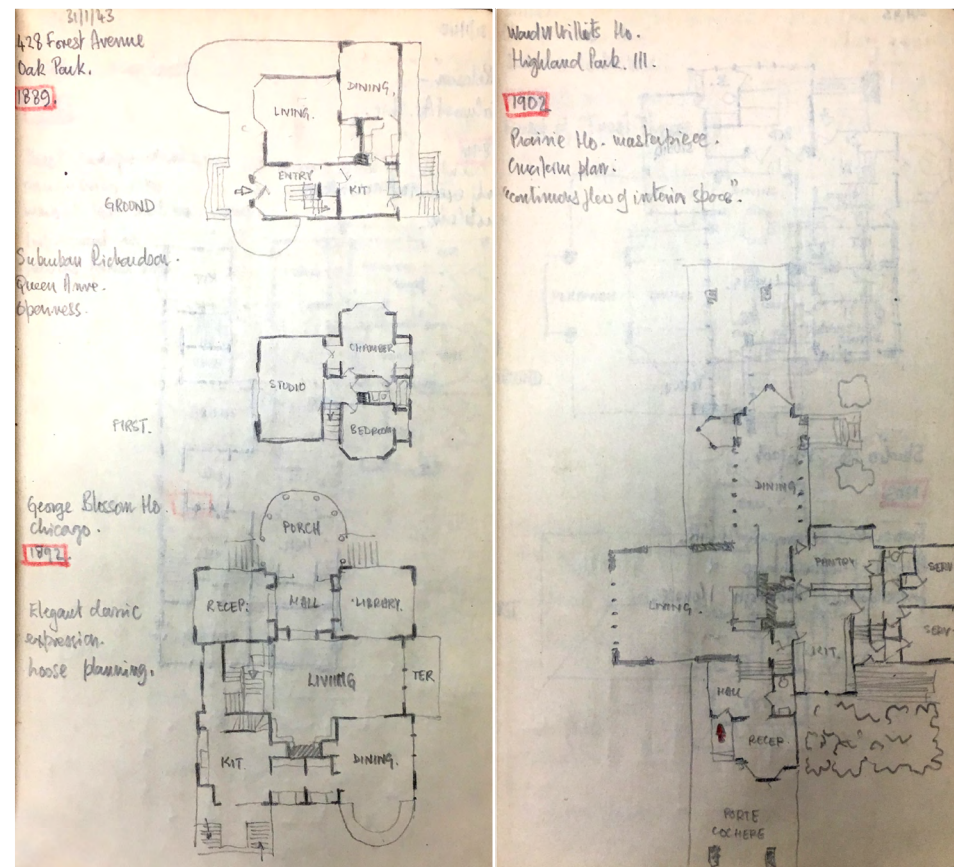 31/1/43
428 Forest Avenue
Oak Park.
1889.
DINING.
LIVING.
ENTRY
KIT
GROUND
Suburban Richardson.
Queen Anne.
Openness.
CHAMBER
STUDIO
BEDROOM
FIRST.
George Blossom Ho.
Chicago.
1892.
PORCH
RECEP.
HALL
LIBRARY.
Elegant classic
expression.
Loose planning.
LIVING
TER
KIT.
DINING.
Ward Willits Ho.
Highland Park. Ill.
1902
Prairie Ho. masterpiece.
Cruciform plan.
"continuous flow of interior space".
DINING
PANTRY
SERV
LIVING.
SERV
KIT.
HALL
RECEP.
PORTE
COCHERE